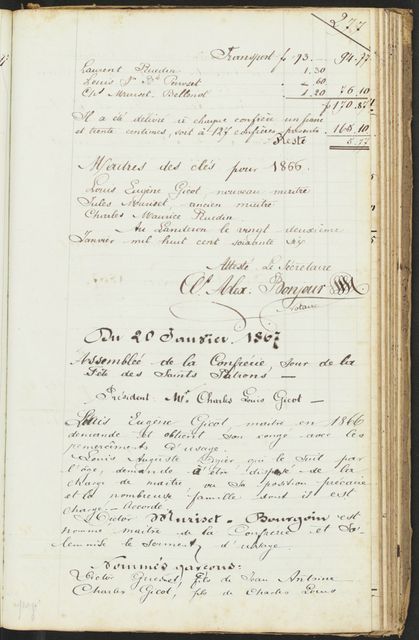 277
Transport f 73.- 94.77
Laurent Ruedin 1.30
Louis Muriset - 60
Muriset-Bellenot 1.20 76.10
f 170.87
Il a été délivré à chaque confrère un franc
et trente centimes, soit à 127 confrères présents 165.10
Reste 5.77
Maitres des clés pour 1866.
Louis Eugène Gicot nouveau maitre
Jules Muriset, ancien maitre
Charles Maurice Ruedin.
Au Landeron le vingt deuxième
Janvier mil huit cent soixante six
Attesté Le Secrétaire
Alex. Bonjour
Notaire
Du 20 Janvier 1867
Assemblée de la Confrérie, Jour de la
Fête des Saints Patrons —
Président Mr Charles Louis Gicot —
Louis Eugène Gicot, maitre en 1866
demande et obtient son congé avec les
remerciements d'usage.
Louis Auguste qui le suit par
l'âge, demande à être dispensé de la
charge de maitre vu sa position précaire
et la nombreuse famille dont il est
chargé - Accordé.
Victor Muriset - Bourgoin est
nommé maitre de la Confrérie et
le serment d'usage.
Nommés garçons:
Victor Gueniat, fils de Jean Antoine
Charles Gicot, fils de Charles Louis